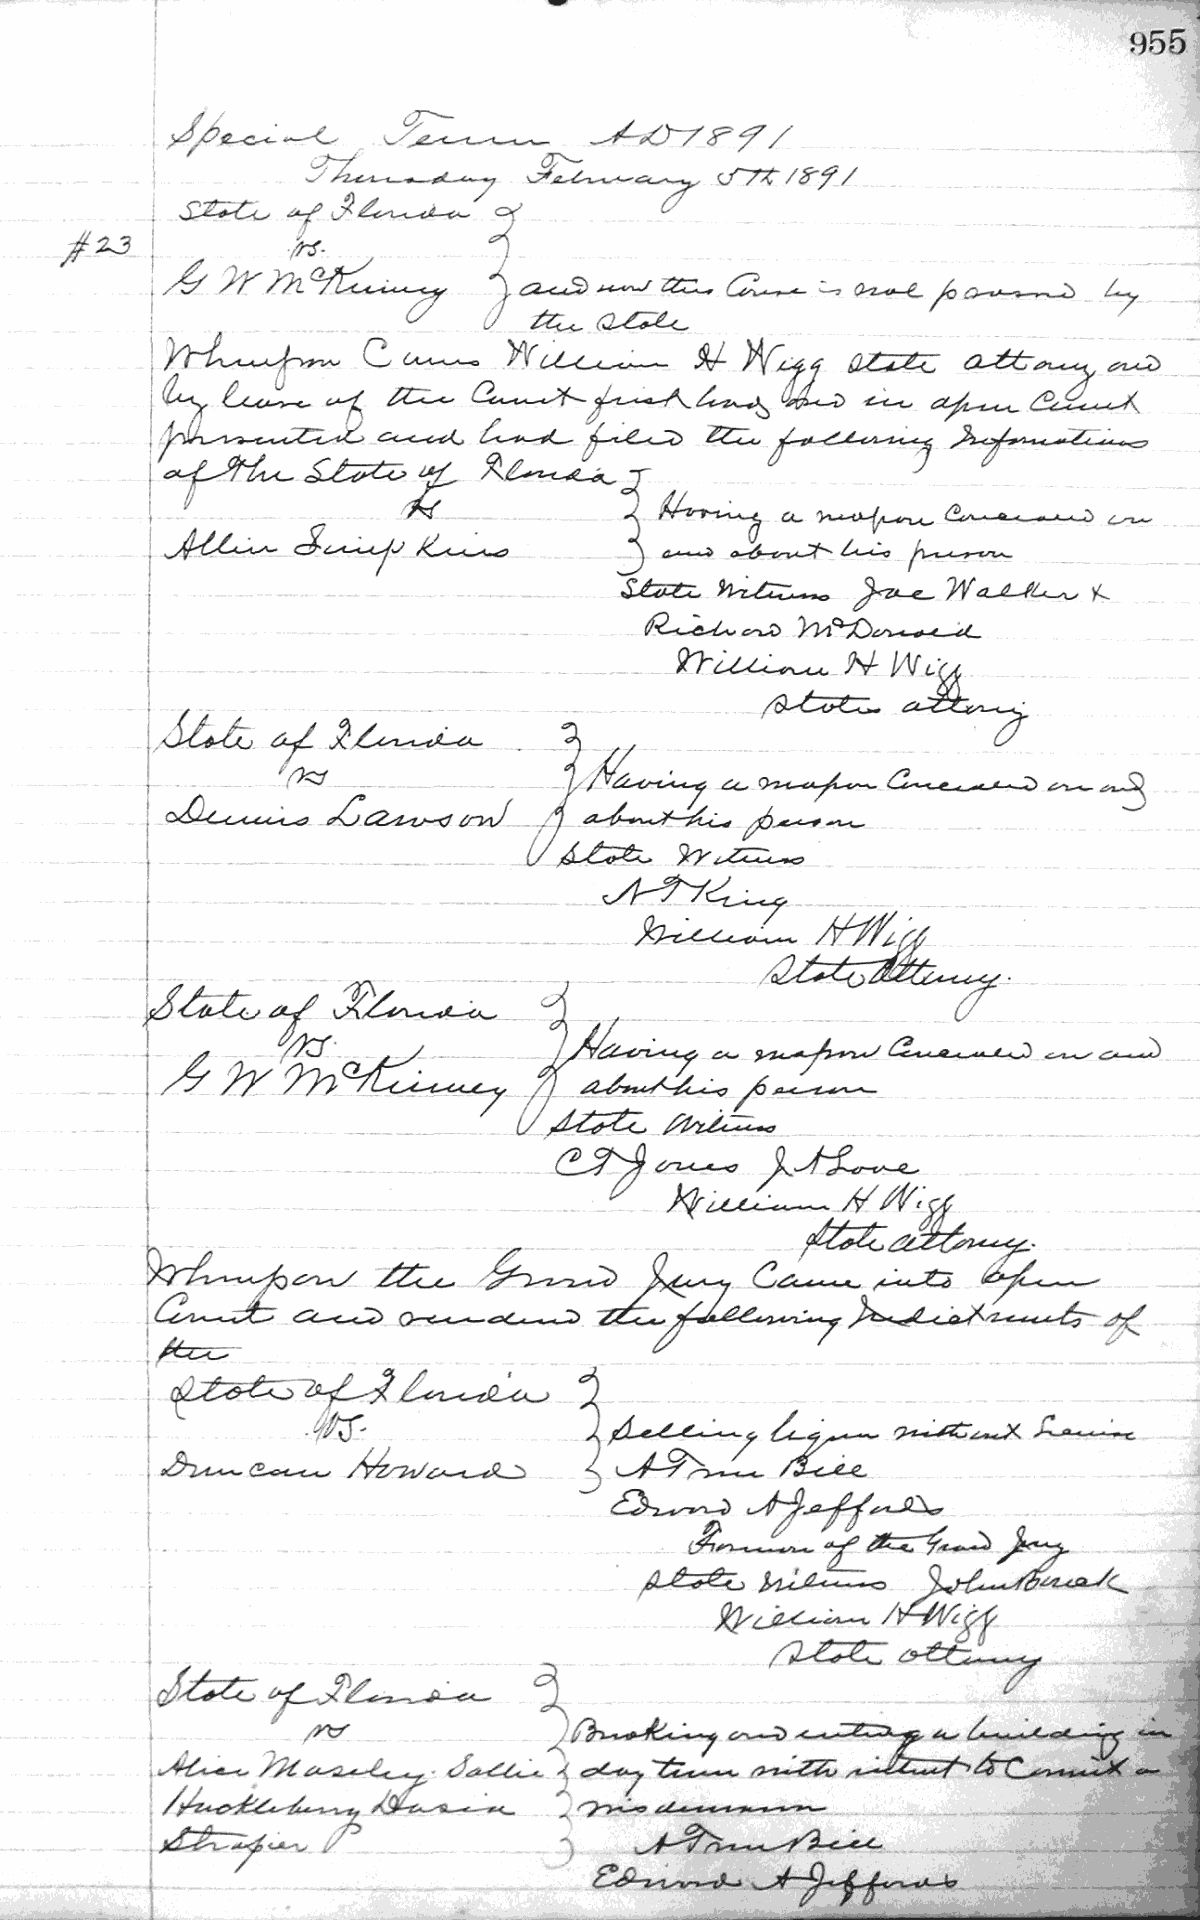 955
Special Term AD 1891
Thursday February 5th 1891
State of Florida
#23
vs.
G W McKinney and now this Cause is nol prossed by
the State
Whereupon Comes William H Wigg State Attorney and
by leave of the Court first had and in open Court
presented and had filed the following Informations
of The State of Florida
vs
Having a weapon Concealed on
Allin Simpkins and about his person
State Witness Joe Walker &
Richard McDonald
William H Wigg
State attorny
State of Florida
vs Having a weapon Concealed on and
Dennis Lawson about his person
State Witness
N T King
William H Wigg
State Attorney.
State of Florida
vs. Having a weapon Concealed on and
G W McKinney about his person
State Witness
C T Jones J A Love
William H Wigg
State attorney.
Whereupon the Grand Jury Came into open
Court and rendered the following Indictments of
the
State of Florida
vs. Selling liquor without License
Duncan Howard A True Bill
Edward A Jeffords
Foreman of the Grand Jury
State Witness John
William H Wigg
State attorney
State of Florida
vs Breaking and entering a building in
Alice Maseley Sallie day time with intent to Commit a
Huckleberry Dasia misdemeanor
Strapier A True Bill
Edward A Jeffords